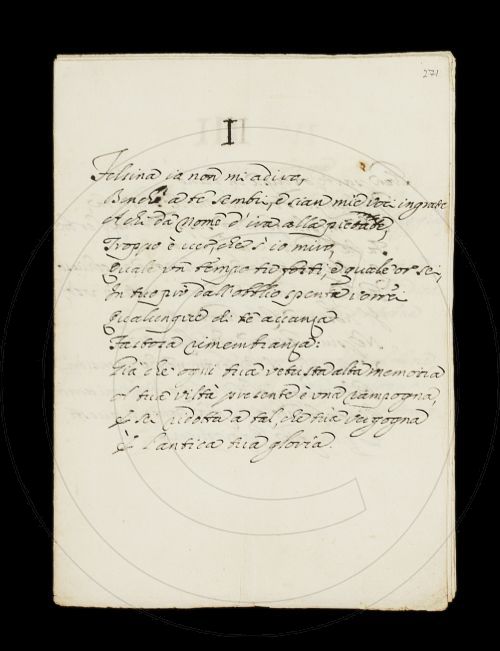 271
I
Felsina ia non mi adiro,
Benche a te sembri, e sian mie voci ingrate
A chi dà nome d'ira alla pietade,
Troppo è ver, che s'io miro,
Quale un tempo tu fosti, e quale or sei,
In tuo prò dall'obblio spenta vorrei
Qualunque di te avanza
Fastosa rimembranza:
Già che ogni tua vetusta alta memoria
Al tua viltà presente è una rampogna,
E sei ridotta a tal, che tua vergogna
È l'antica tua gloria.